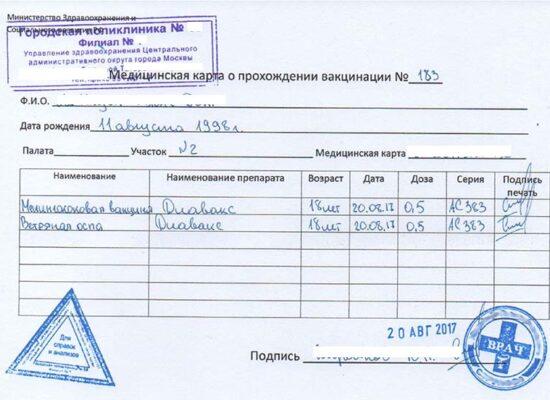 Министерство Здравоохранения и
Социального
Городская поликлиника №
Филиал №
Управление здравоохранения Центрального
административного округа города Москвы
Медицинская карта о прохождении вакцинации № 183
Ф.И.О.
Дата рождения 11 августа 1998г.
Палата Участок №2 Медицинская карта
Наименование Наименование препарата Возраст Дата Доза Серия Подпись печать
вакцина Диавакс 18 лет 20.08.17 0,5 АС 383
Ветряная оспа Диавакс 18 лет 20.08.17 0,5 АС 383
Для
справок
и анализов
20 АВГ 2017
Подпись
ВРАЧ